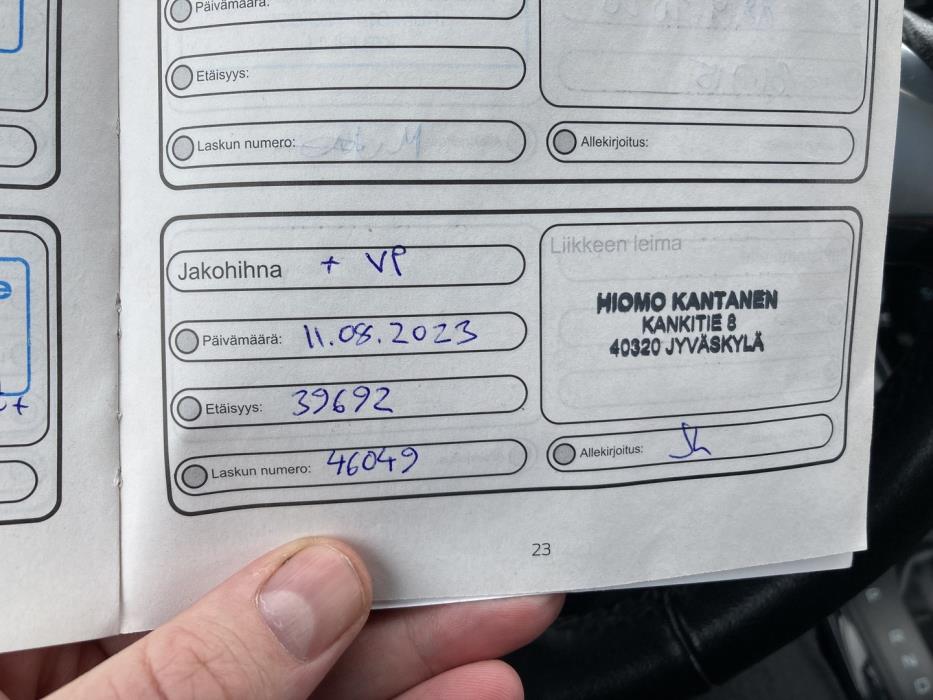 Päivämäärä:
Etäisyys:
Laskun numero:
Allekirjoitus:
Jakohihna + VP
Päivämäärä: 11.08.2023
Etäisyys: 39692
Laskun numero: 46049
Liikkeen leima
HIOMO KANTANEN
KANKITIE 8
40320 JYVÄSKYLÄ
Allekirjoitus:
23